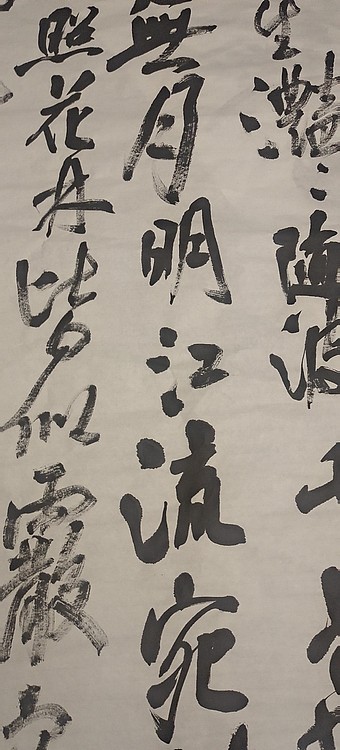 生灩〻隨波千
無月明江流宛
照花林皆似霰